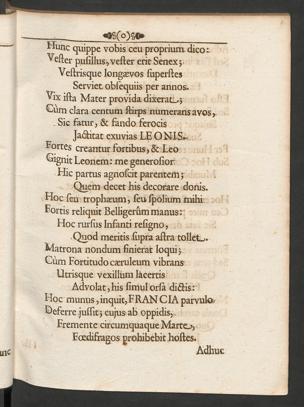 Hunc quippe vobis ceu proprium dico:
Vester pusillus, vester erit Senex;
Vestrisque longævos superstes
Serviet obsequiis per annos.
Vix ista Mater provida dixerat;
Cùm clara centum stirps numerans avos,
Sic fatur, & fando ferocis
Jactitat exuvias LEONIS.
Fortes creantur fortibus, & Leo
Gignit Leonem: me generosior
Hic partus agnoscit parentem;
Quem decet his decorare donis.
Hoc seu trophæum, seu spolium mihi
Fortis reliquit Belligerûm manus:
Hoc rursus Infanti resigno,
Quod meritis supra astra tollet.
Matrona nondum finierat loqui;
Cùm Fortitudo cæruleum vibrans
Utrisque vexillium lacertis
Advolat, his simul orsa dictis:
Hoc munus, inquit, FRANCIA parvulo
Deferre jussit; cujus ab oppidis,
Fremente circumquaque Marte,
Fœdifragos prohibebit hostes.
Adhuc